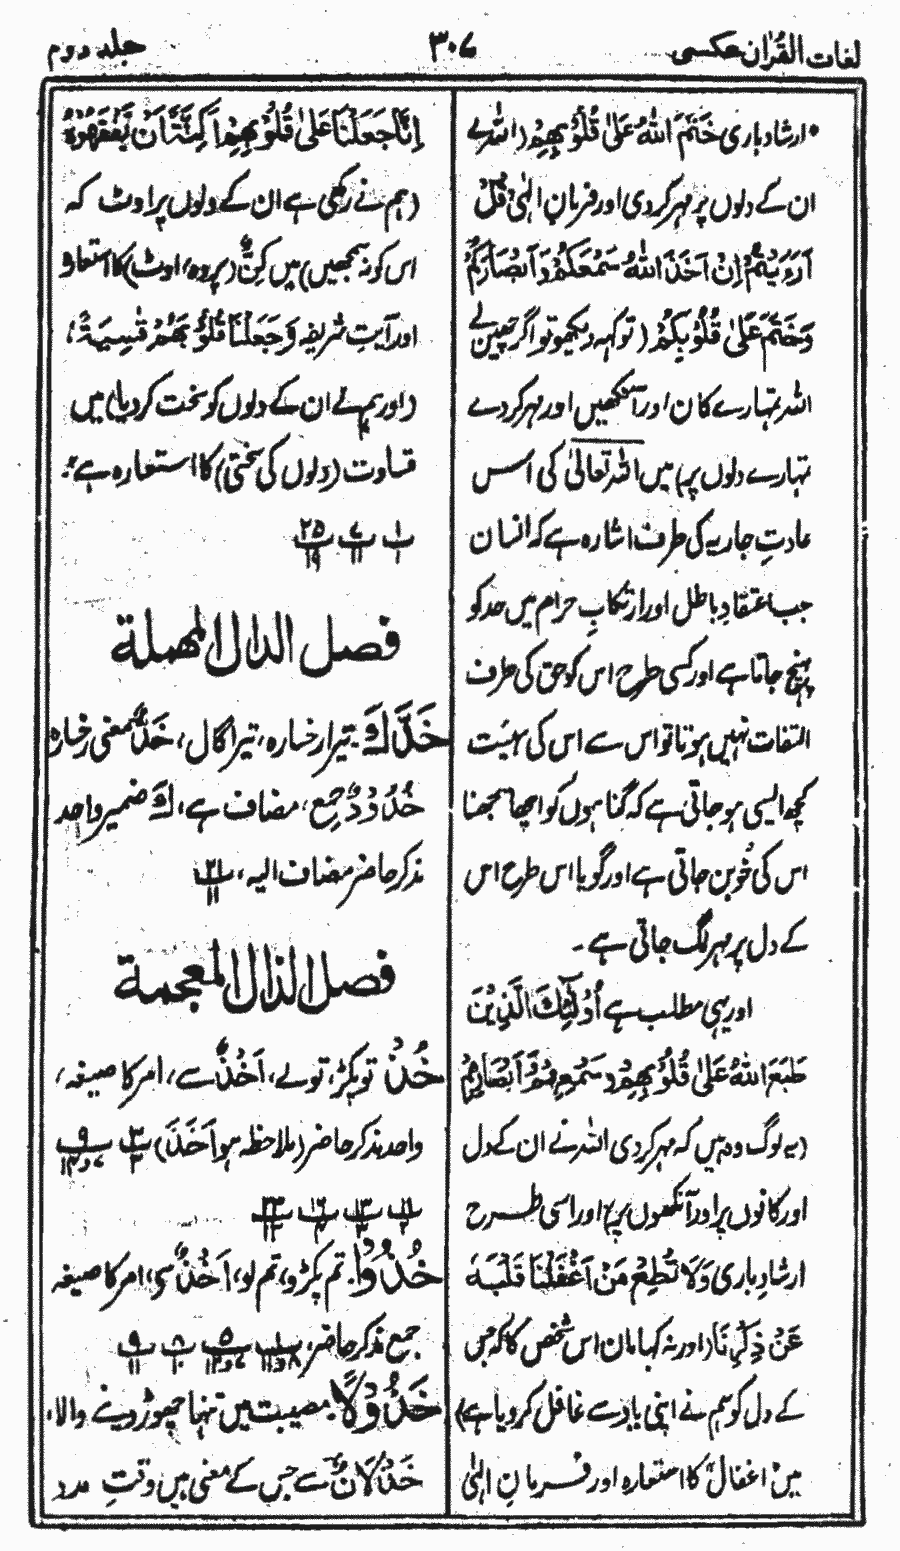 لغات القرآن عکسی
۳۰۷
جلد دوم
ارشاد باری خَتَمَ اللّٰہُ عَلٰی قُلُوْبِہِمْ (اللہ نے
ان کے دلوں پر مہر کر دی اور فرمانِ الٰہی قُلْ
اَرَءَیْتُمْ اِنْ اَخَذَ اللّٰہُ سَمْعَکُمْ وَاَبْصَارَکُمْ
وَخَتَمَ عَلٰی قُلُوْبِکُمْ (تو کہہ دیکھو تو اگر چھین لے
اللہ تمہارے کان اور آنکھیں اور مہر کر دے
تمہارے دلوں پر) میں اللہ تعالیٰ کی اسس
عادتِ جاریہ کی طرف اشارہ ہے کہ انسان
جب اعتقادِ باطل اور ارتکابِ حرام میں حد کو
پہنچ جاتا ہے اور کسی طرح اس کو حق کی طرف
التفات نہیں ہوتا تو اس سے اس کی ہیئت
کچھ ایسی ہو جاتی ہے کہ گناہوں کو اچھا سمجھنا
اس کی خُو بن جاتی ہے اور گویا اس طرح اس
کے دل پر مہر لگ جاتی ہے۔
اور یہی مطلب ہے اُولٰٓئِکَ الَّذِیْنَ
طَبَعَ اللّٰہُ عَلٰی قُلُوْبِہِمْ وَسَمْعِہِمْ وَاَبْصَارِہِمْ
(یہ لوگ وہ ہیں کہ مہر کر دی اللہ نے ان کے دل
اور کانوں پر اور آنکھوں پر) اور اسی طرح
ارشادِ باری وَلَا تُطِعْ مَنْ اَغْفَلْنَا قَلْبَہٗ
عَنْ ذِکْرِنَا (اور نہ کہا مان اس شخص کا کہ جس
کے دل کو ہم نے اپنی یاد سے غافل کر دیا ہے)
میں اغفال کا استعارہ اور فرمانِ الٰہی
اِنَّا جَعَلْنَا عَلٰی قُلُوْبِہِمْ اَکِنَّۃً اَنْ یَّفْقَہُوْہُ
(ہم نے رکھی ہے ان کے دلوں پر اوٹ کہ
اس کو نہ سمجھیں) میں کِنٌّ (پردہ، اوٹ) کا استعارہ
اور آیتِ شریفہ وَجَعَلْنَا قُلُوْبَہُمْ قٰسِیَۃً،
(اور ہم نے ان کے دلوں کو سخت کر دیا) میں
قساوت (دلوں کی سختی) کا استعارہ ہے۔
۱/۱ ۷/۱۱ ۲۵/۱۹
فصل الدال المھملۃ
خَدَّكَ۔ تیرا رخسارہ، تیرا گال، خَدٌّ بمعنی رخسارہ
خُدُوْدٌ جمع، مضاف ہے، كَ ضمیر واحد
مذکر حاضر مضاف الیہ، ۲۱/۱۱
فصل الذال المعجمۃ
خُذْ تو پکڑ، تو لے، اَخْذٌ سے، امر کا صیغہ،
واحد مذکر حاضر (ملاحظہ ہو اَخَذَ) ۳/۳ ۹/۷و۱۴
۱۱/۲ ۱۳/۳ ۱۶/۴ ۲۳/۱۳
خُذُوْا۔ تم پکڑو، تم لو، اَخْذٌ سی، امر کا صیغہ
جمع مذکر حاضر، ۱/۸و۱۱ ۵/۷و۱۲ ۸/۱۰ ۹/۱۱
خَذُوْلًا۔ مصیبت میں تنہا چھوڑ دینے والا،
خَذْلَانٌ سے جس کے معنی ہیں وقتِ مدد